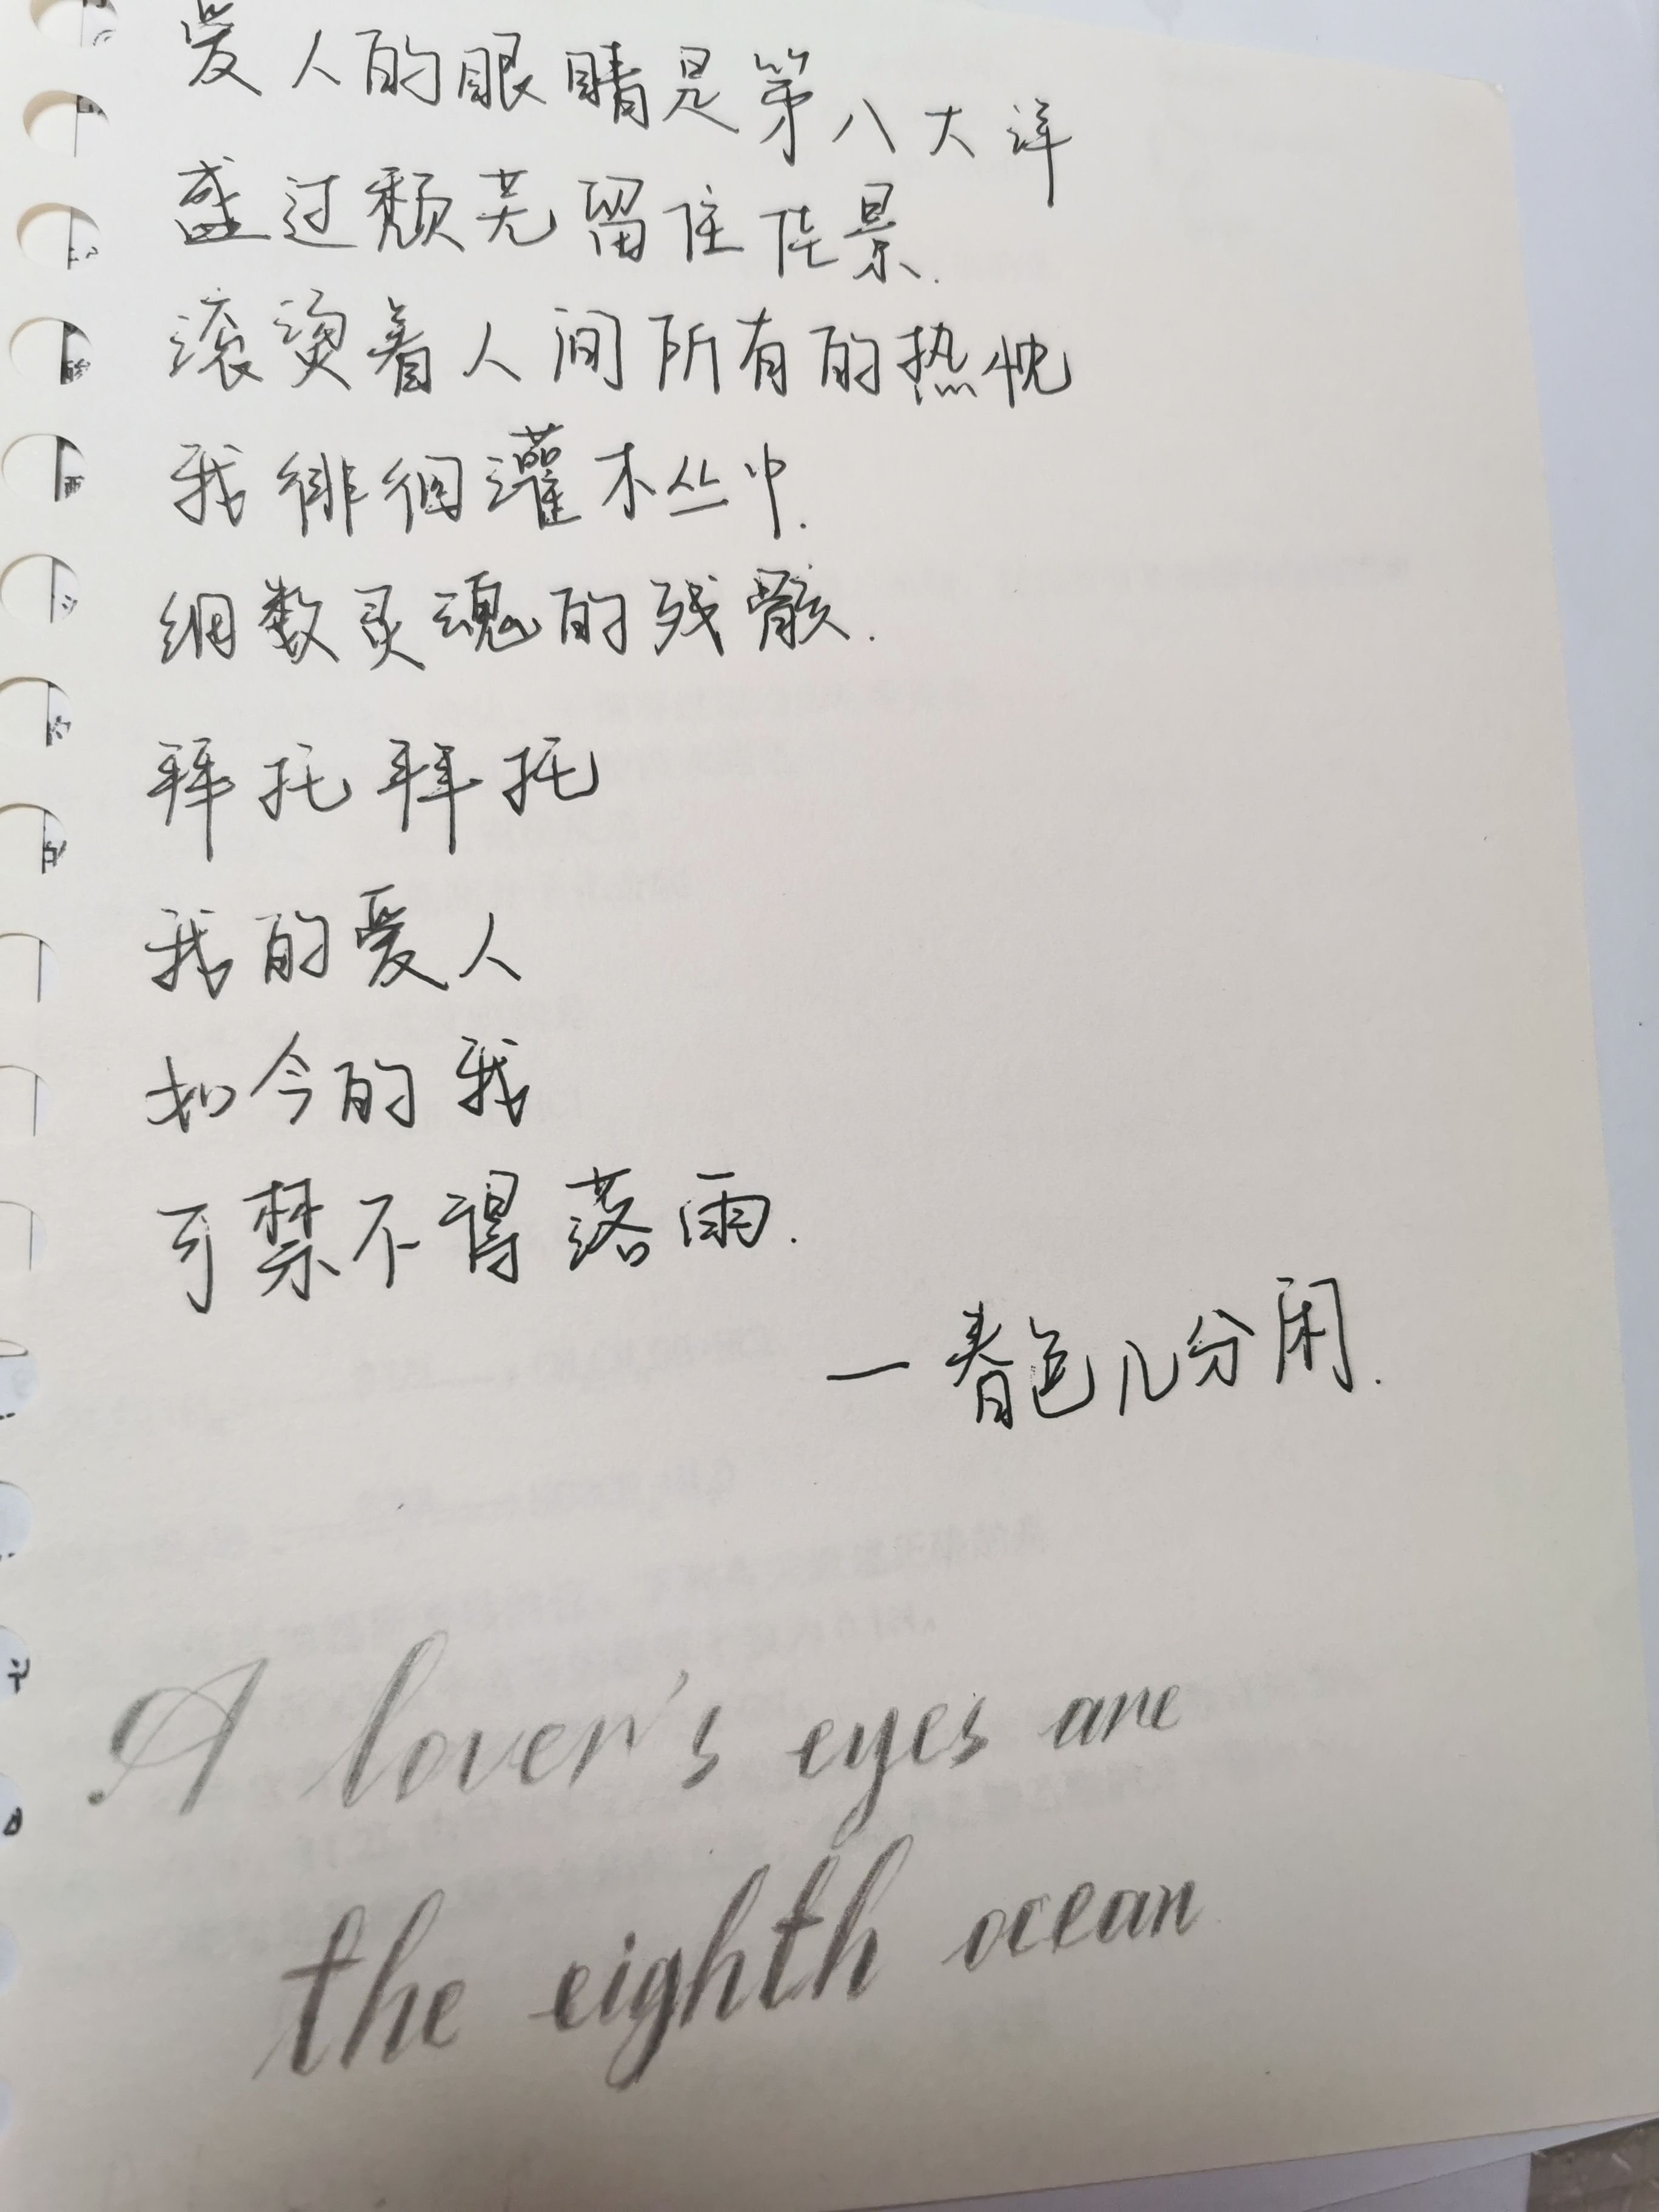 爱人的眼睛是第八大洋
盛过颓芜留住佳景.
滚烫着人间所有的热忱
我徘徊灌木丛中.
细数灵魂的残骸.
拜托拜托
我的爱人
如今的我
可禁不得落雨.
—春色几分闲.
A lover's eyes are
the eighth ocean